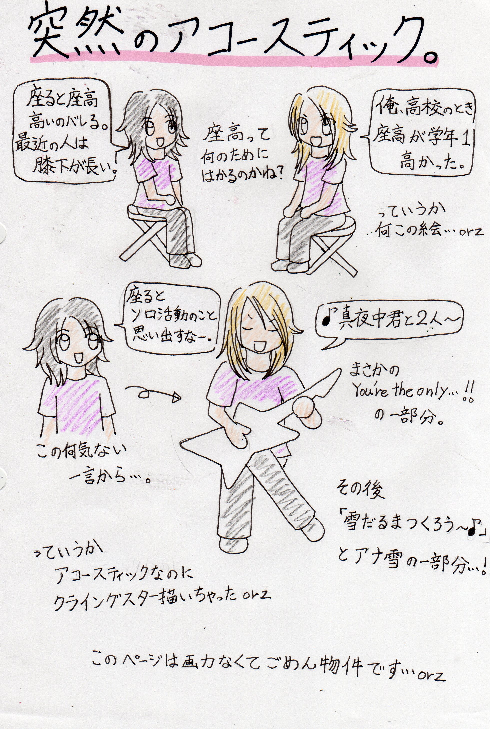 突然のアコースティック。
座ると座高
高いのバレる。
最近の人は
膝下が長い。
座高って
何のために
はかるのかね?
俺、高校のとき
座高が学年1
高かった。
っていうか
何この絵…orz
座ると
ソロ活動のこと
思い出すなー。
♪真夜中君と2人〜
まさかの
You're the only…!!
の一部分。
この何気ない
一言から…。
その後
「雪だるまつくろう〜♪」
とアナ雪の一部分…!
っていうか
アコースティックなのに
クライングスター描いちゃったorz
このページは画力なくてごめん物件です…orz